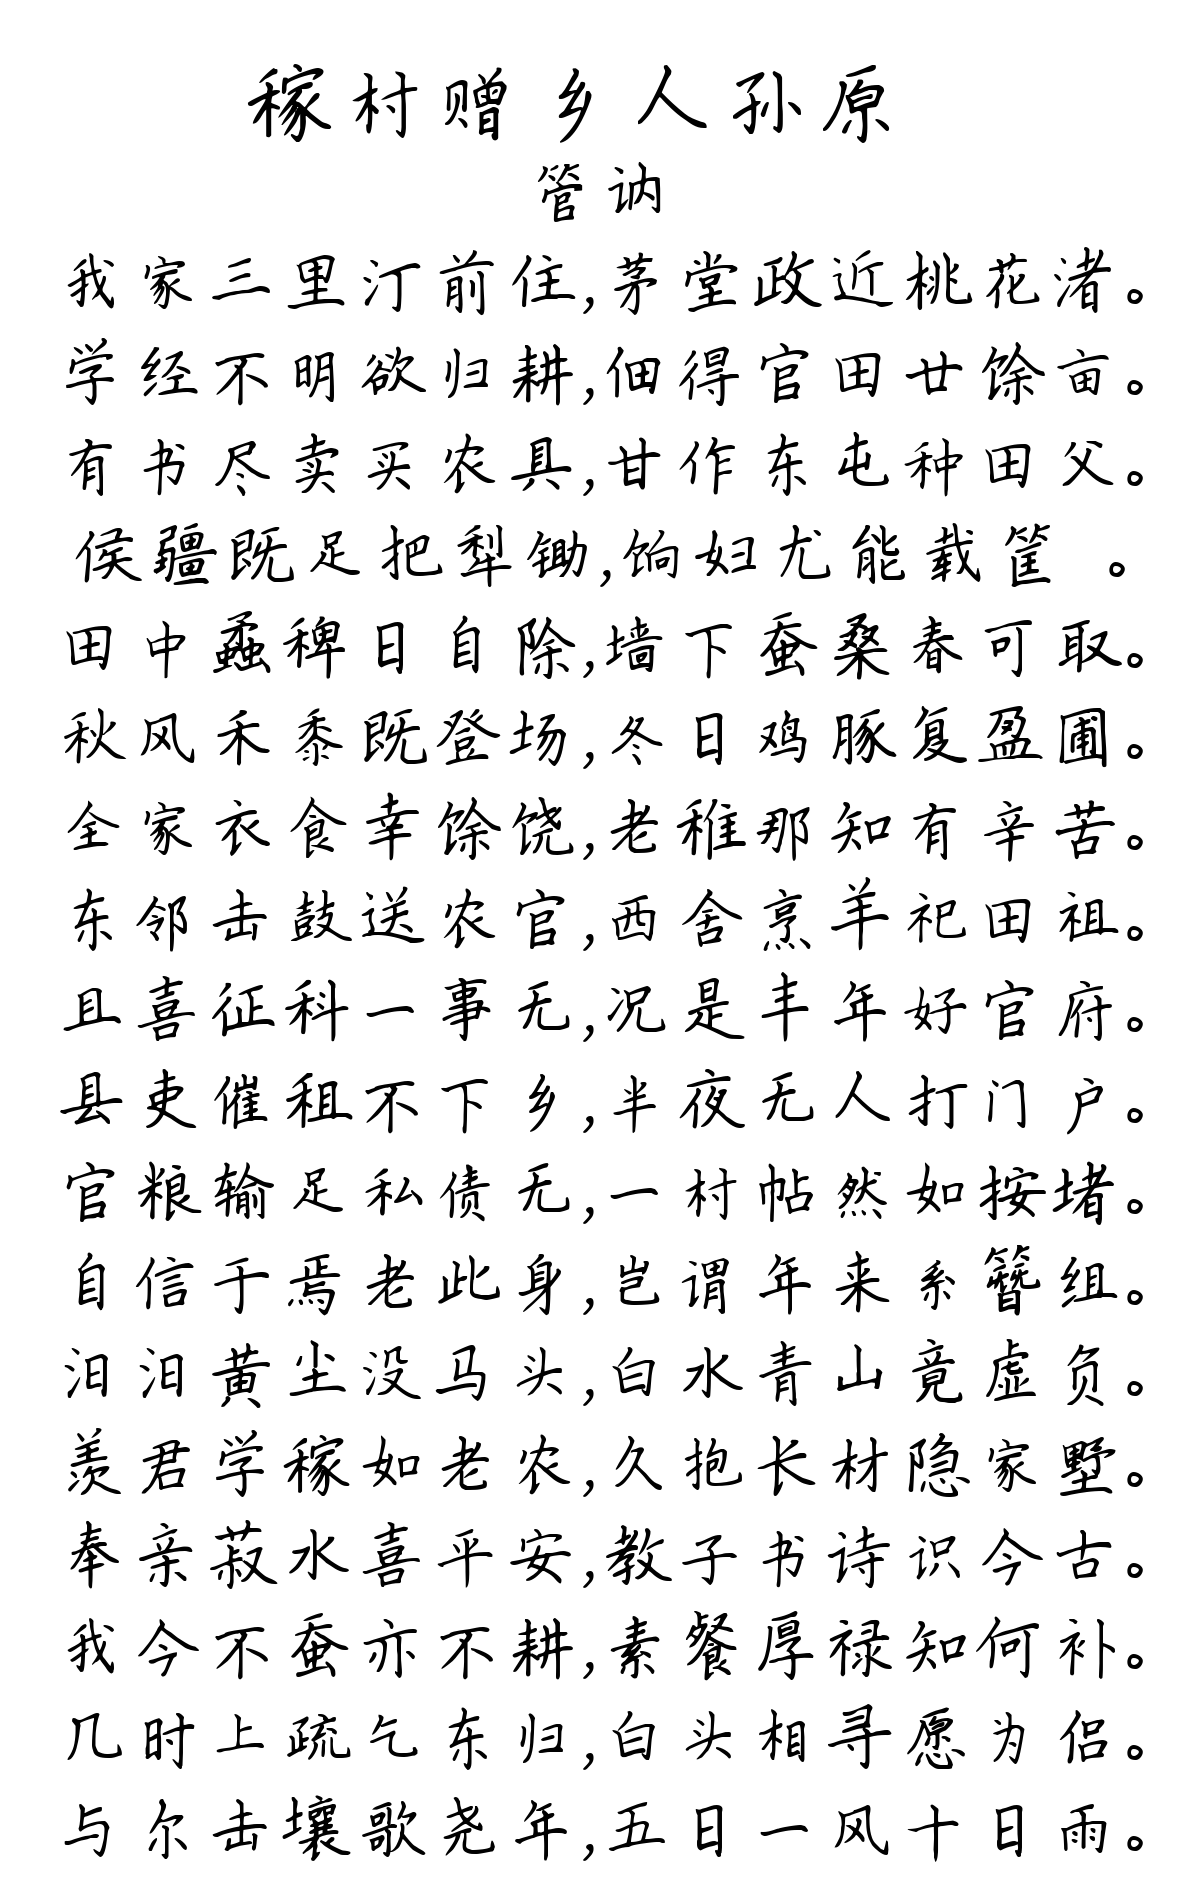 稼村赠乡人孙原
管讷
我家三里汀前住,茅堂政近桃花渚。
学经不明欲归耕,佃得官田廿馀亩。
有书尽卖买农具,甘作东屯种田父。
侯疆既足把犁锄,饷妇尤能载筐 。
田中蟊稗日自除,墙下蚕桑春可取。
秋风禾黍既登场,冬日鸡豚复盈圃。
全家衣食幸馀饶,老稚那知有辛苦。
东邻击鼓送农官,西舍烹羊祀田祖。
且喜征科一事无,况是丰年好官府。
县吏催租不下乡,半夜无人打门户。
官粮输足私债无,一村帖然如按堵。
自信于焉老此身,岂谓年来系簪组。
汨汨黄尘没马头,白水青山竟虚负。
羡君学稼如老农,久抱长材隐家墅。
奉亲菽水喜平安,教子书诗识今古。
我今不蚕亦不耕,素餐厚禄知何补。
几时上疏乞东归,白头相寻愿为侣。
与尔击壤歌尧年,五日一风十日雨。